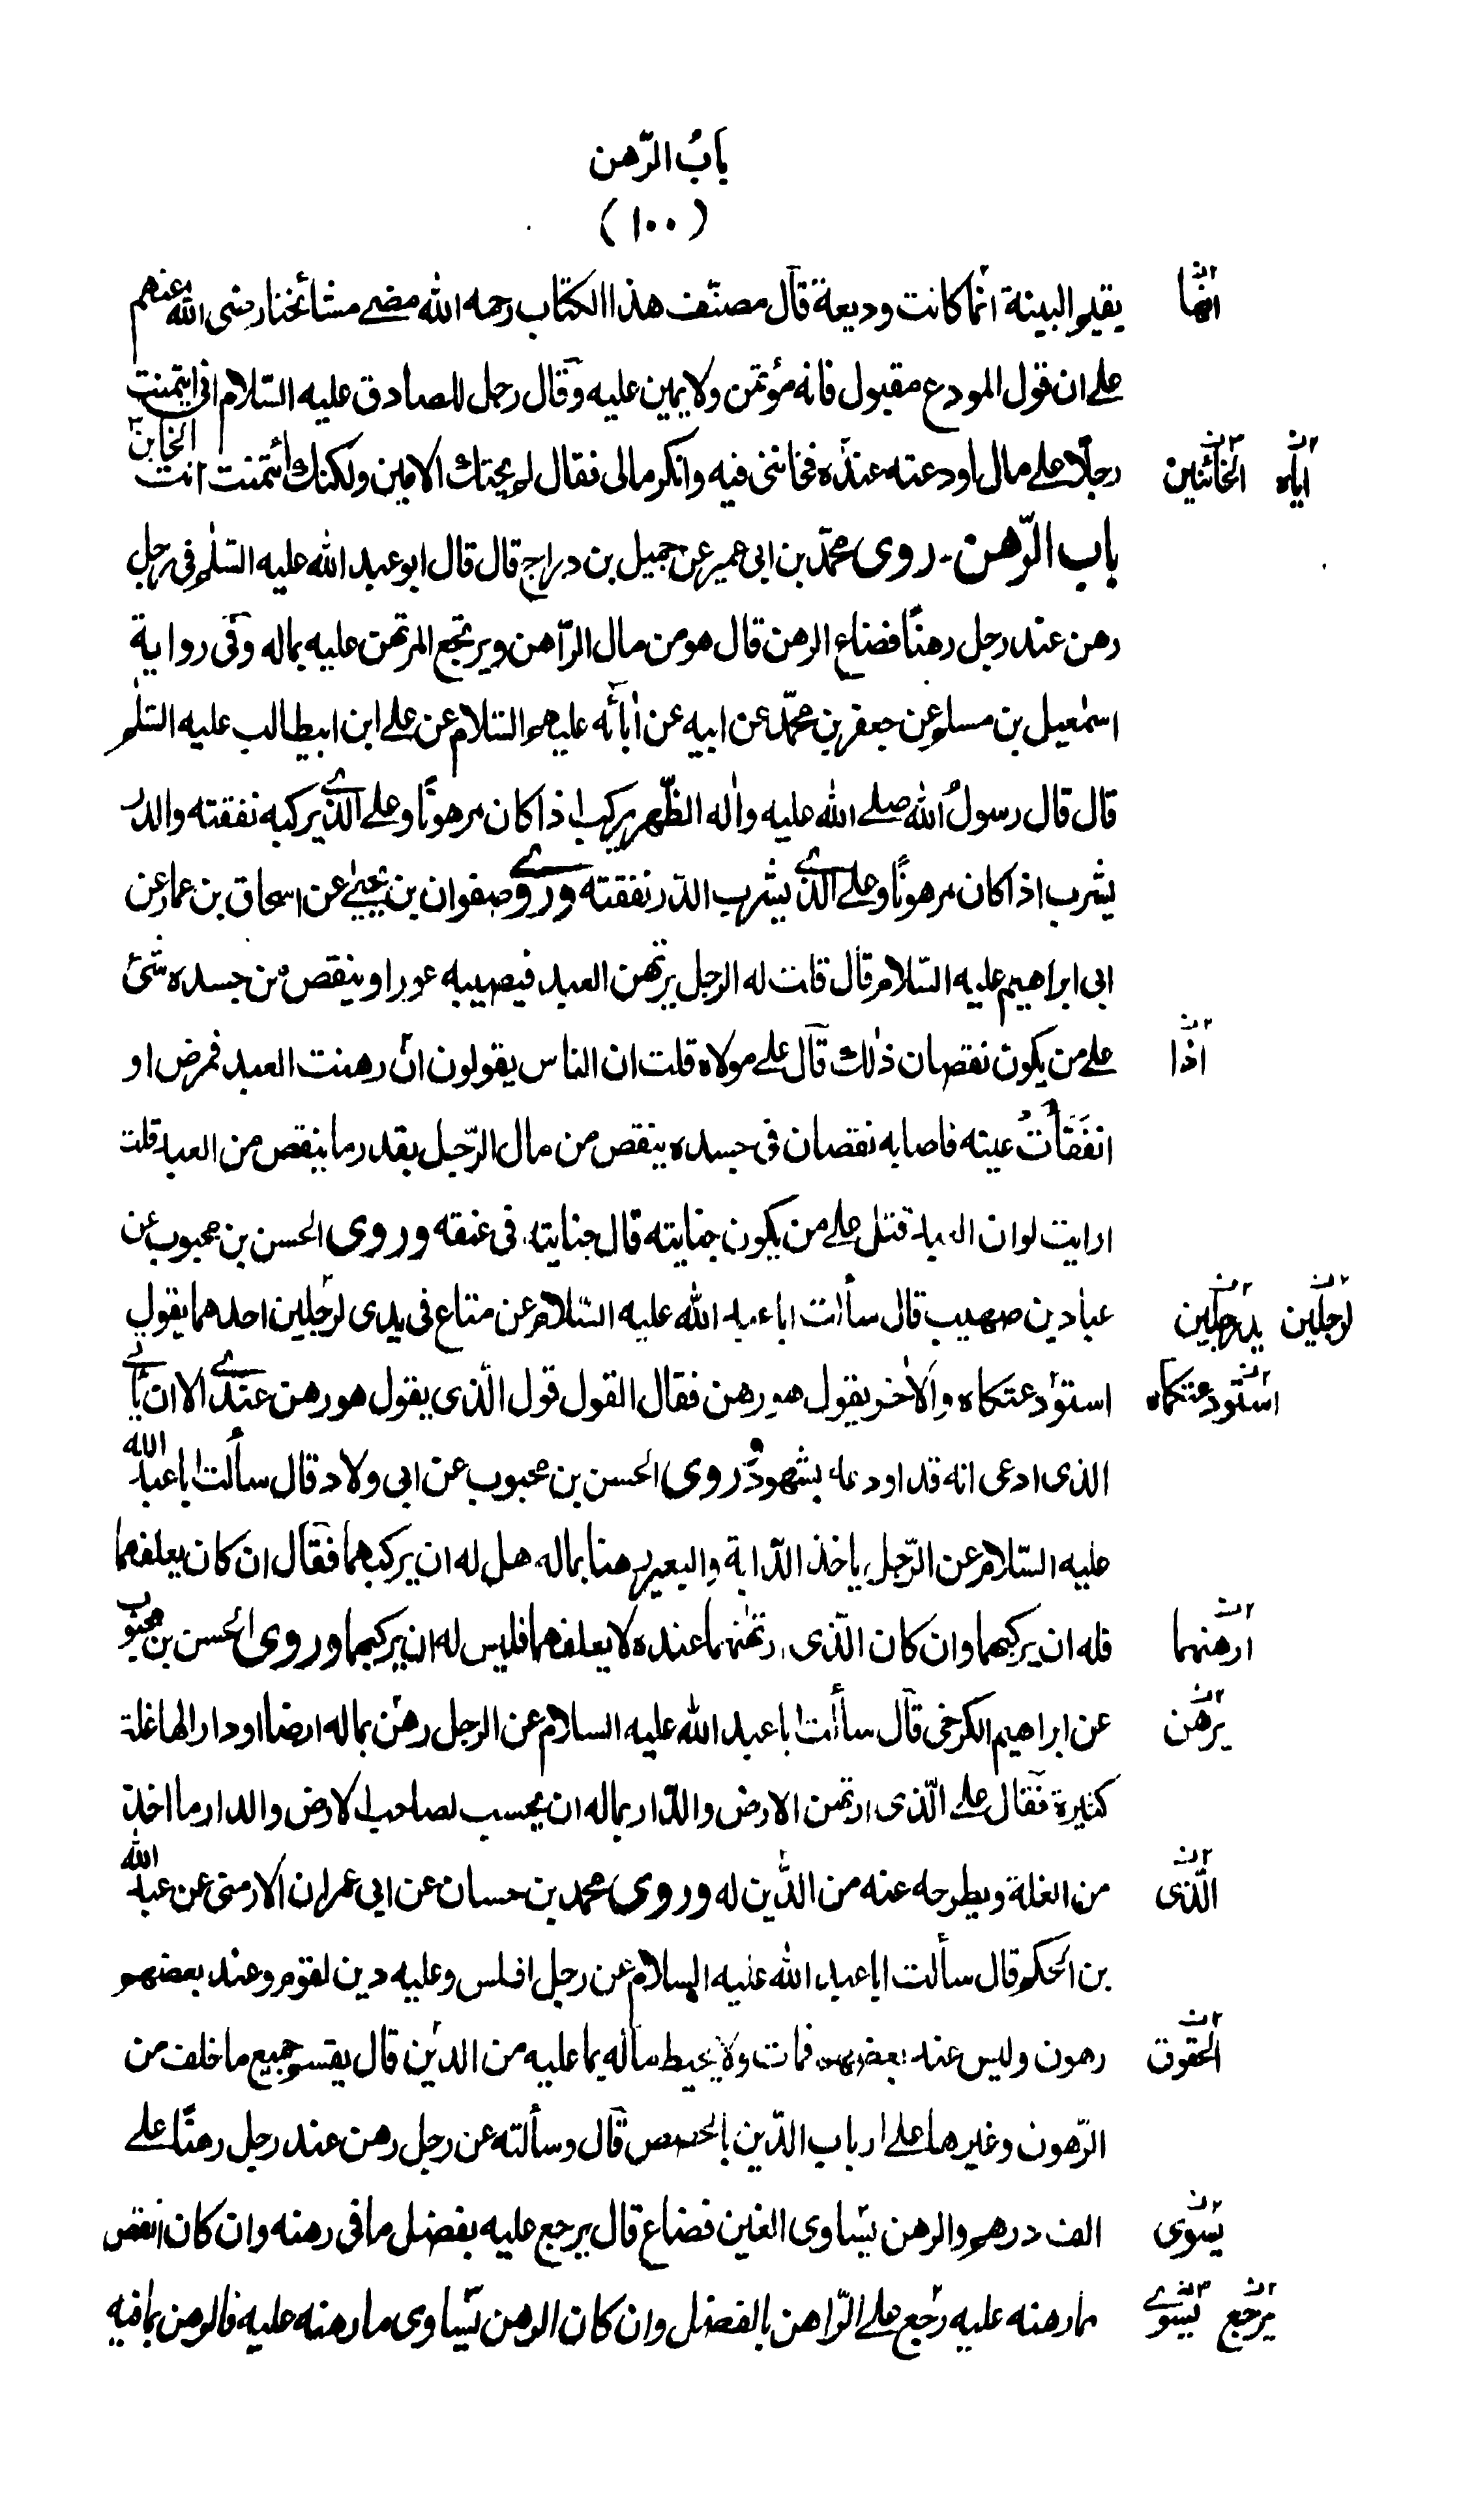 باب الرّهن
(١٠٠)
يقيم البينة انما كانت وديعة قال مصنّف هذا الكتاب رحمه الله مضے مشائخنا رضى الله عنهم
علے ان قول المودع مقبول فانه مؤتمن ولا يمين عليه وقال رجل للصادق عليه السّلام انى ايتمنت
رجلًا علے مال اودعته عنده فخاننى فيه وانكر مالى فقال لم يخنك الامين ولكنك ائتمنت انت الخاين
باب الرّهن۔ روى محمّد بن ابى عمير عن جميل بن دراج قال قال ابو عبد الله عليه السّلم فى رجل
رهن عند رجل رهنًا فضاع الرهن قال هو من مال الرّاهن ويرتجع المرتهن عليه بماله وفى رواية
اسمٰعيل بن مسلم عن جعفر بن محمّد عن ابيه عن اٰبائه عليهم السّلام عن علے ابن ابيطالب عليه السّلم
قال قال رسول الله صلے الله عليه واٰله الظّهر يركب اذا كان مرهونًا وعلے الّذے يركبه نفقته والدرّ
يشرب اذا كان مرهونًا وعلے الّذے يشرب الدّر نفقته وروے صفوان بن يحيےٰ عن اسحاق بن عمار عن
ابى ابراهيم عليه السّلام قال قلت له الرجل يرتهن العبد فيصيبه عور او ينقص من جسده شئ
علے من يكون نقصان ذٰلك قال علے مولاه قلت ان الناس يقولون ان رهنت العبد فمرض او
انفَقَأت عينه فاصابه نقصان فى جسده ينقص من مال الرّجل بقدر ما ينقص من العبد قلت
ارايت لو ان العبد قتل علے من يكون جنايته قال جنايته فى عنقه وروى الحسن بن محبوب عن
عباد بن صهيب قال سألت ابا عبد الله عليه السّلام عن متاع فى يدى لرجلين احدهما يقول
استودعتكاه والاٰخر يقول هو رهن فقال القول قول الّذى يقول هو رهن عندے الا ان ياتے
الذى ادعى انه قد اودعه بشهود وروى الحسن بن محبوب عن ابى ولاد قال سألت ابا عبد الله
عليه السّلام عن الرّجل ياخذ الدّابة والبعير رهنا بماله هل له ان يركبهما فقال ان كان يعلفهما
فله ان يركبهما وان كان الّذى ارتهنهما عنده لا يعلفهما فليس له ان يركبهما وروى الحسن بن محبوب
عن ابراهيم الكرخى قال سألت ابا عبد الله عليه السلام عن الرجل رهن بماله ارضا او دارا لها غلة
كثيرة فقال علے الّذى ارتهن الارض والدّار بماله ان يحسب لصاحب الارض والدار ما اخذ
من الغلة ويطرحه عنه من الدّين له وروى محمد بن حسان عن ابى عمران الارمنى عن عبد الله
بن الحكم قال سألت ابا عبد الله عليه السلام عن رجل افلس وعليه دين لقوم وعند بعضهم
رهون وليس عند بعضهم فمات ولا يحيط ماله بما عليه من الدين قال يقسم جميع ما خلف من
الرّهون وغيرها علے ارباب الدّين بالحصص قال وسألته عن رجل رهن عند رجل رهنًا علے
الف درهم والرهن يساوى الفين فضاع قال يرجع عليه بفضل ما فى رهنه وان كان انقص
مما رهنه عليه رجع علے الرّاهن بالفضل وان كان الرهن يساوى ما رهنه عليه فالرهن بما فيه
انّها
اياه الخائنين
اذا
لرجلين يد رجلين
استودعتكماه
ارهنهما
يرهن
الّذى
الحقوق
يسوى
يرجع يسوے